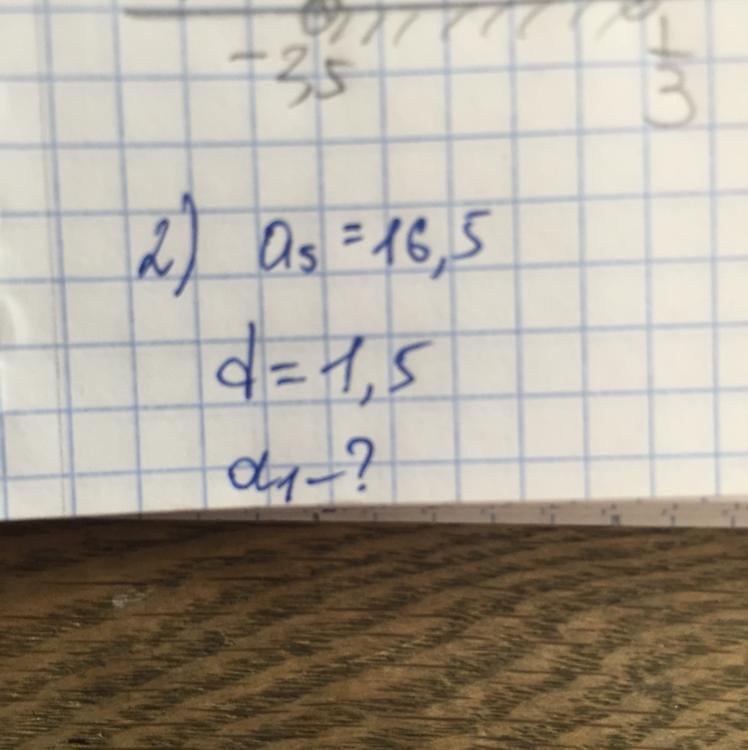 -3,5 1/3
2) a₅ = 16,5
d = 1,5
a₁ - ?